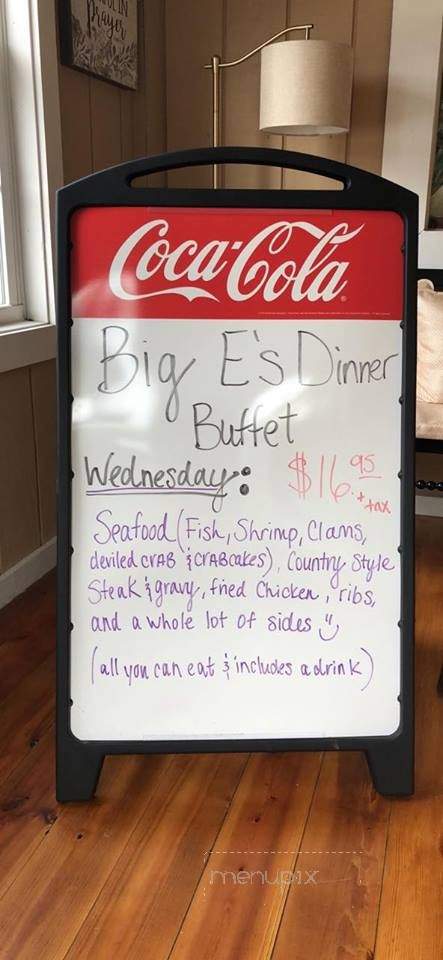 Prayer
Coca-Cola
Big E's Dinner
Buffet
Wednesday:
$16.95 + tax
Seafood (Fish, Shrimp, Clams,
deviled crab & crabcakes), Country Style
Steak & gravy, fried Chicken, ribs,
and a whole lot of sides
(all you can eat & includes a drink)
menupix